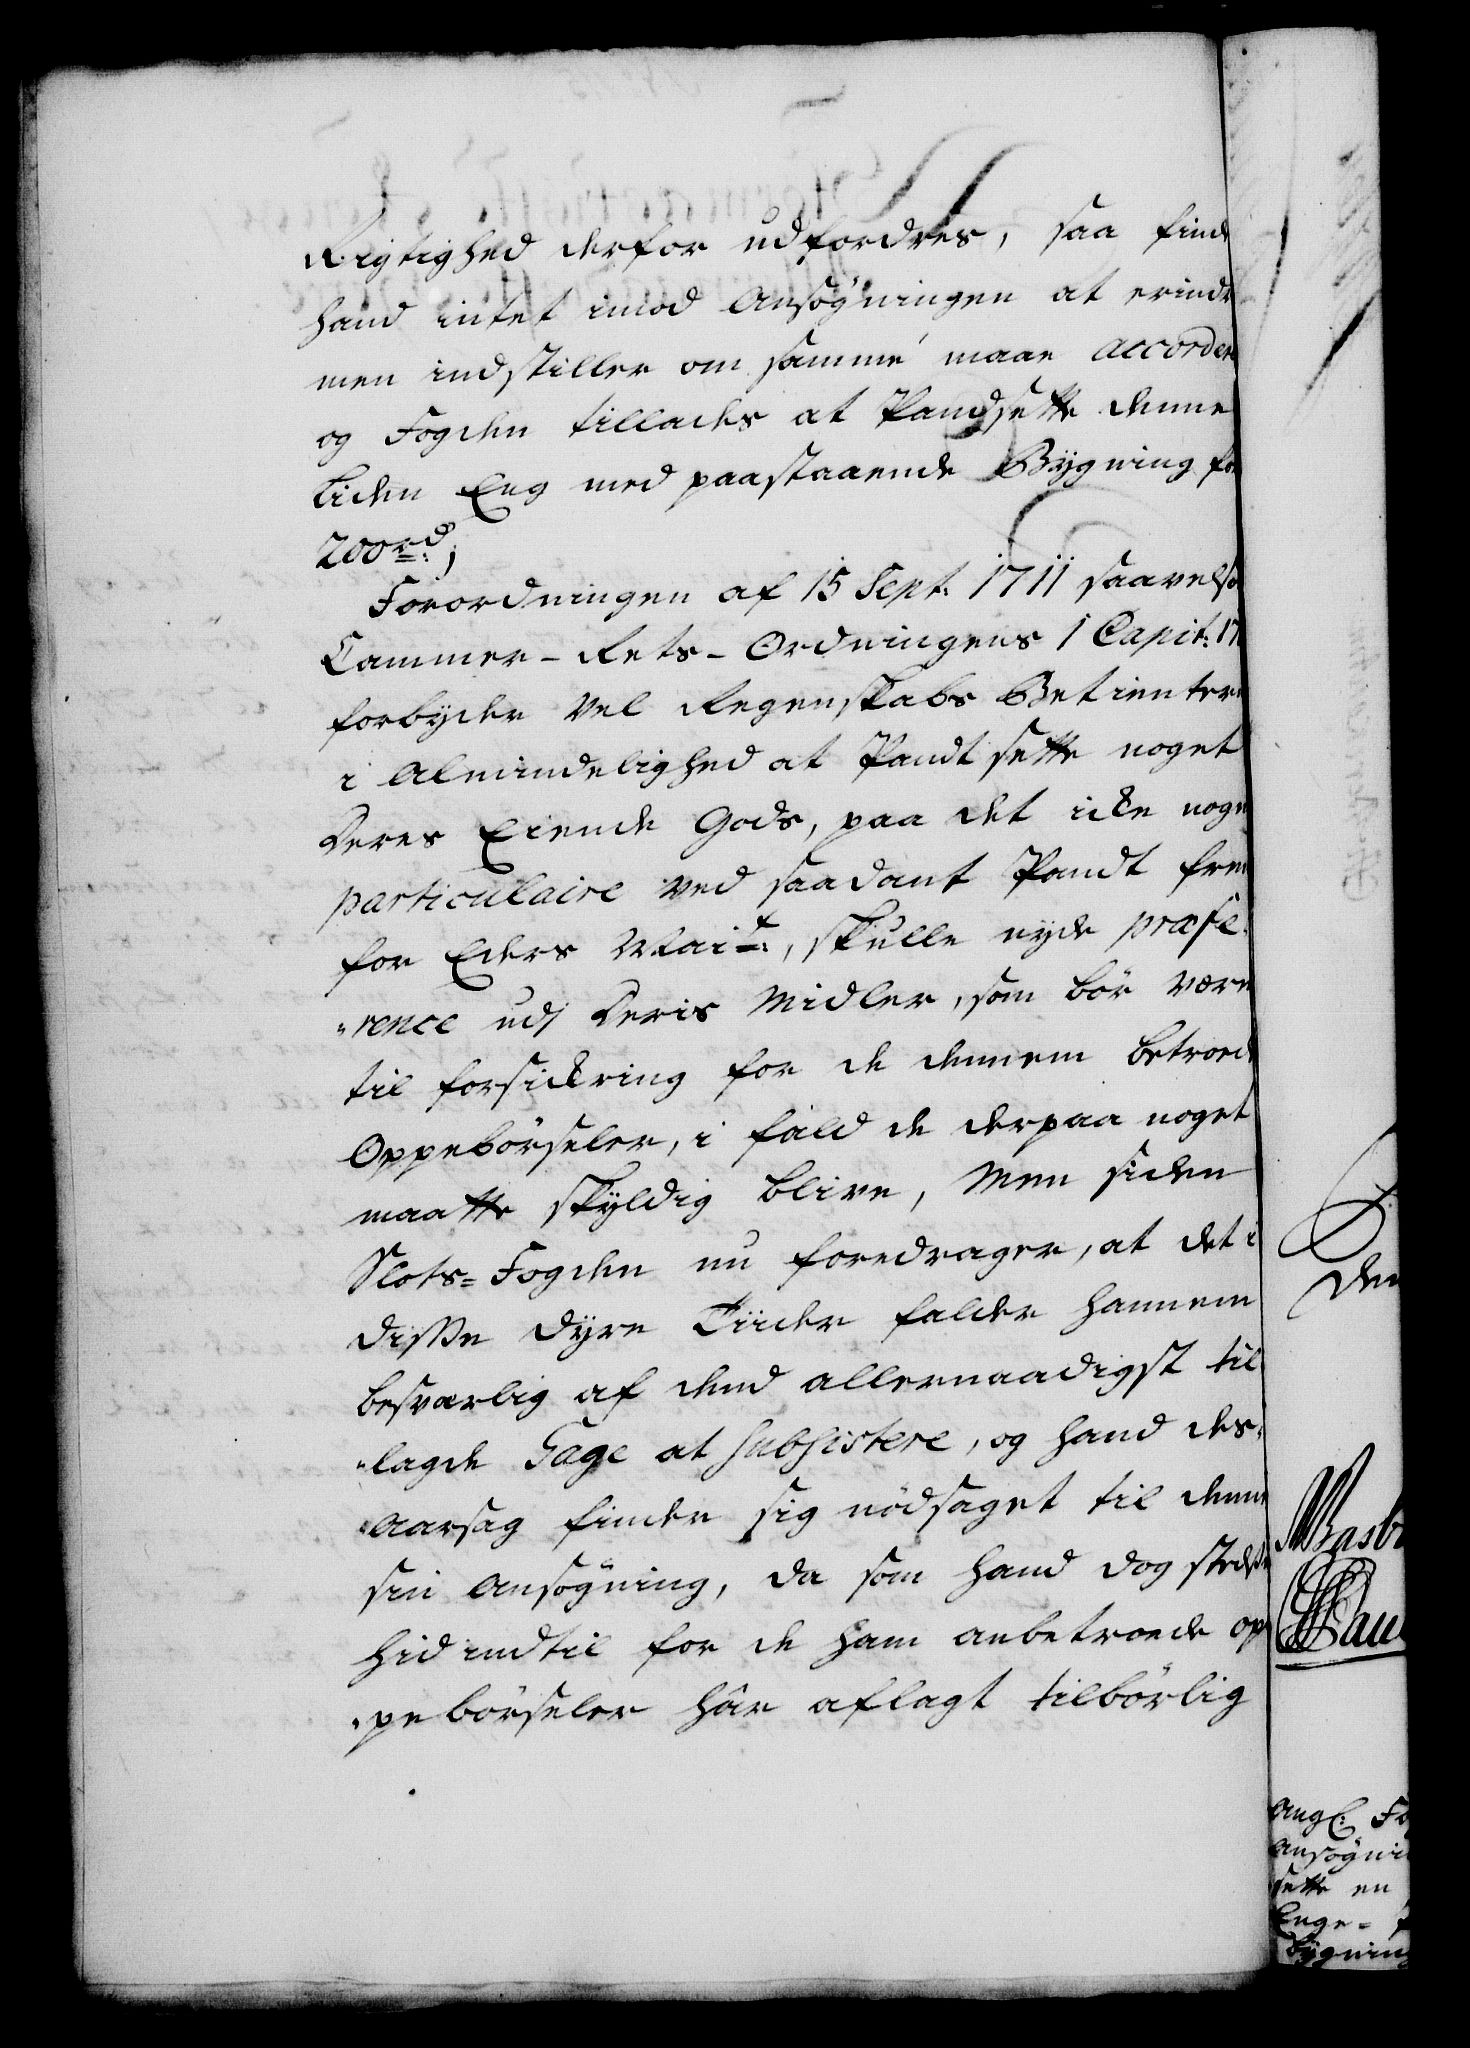 Rigtighed derfor udfordres, saa finde
hand intet imod Ansøgningen at erindr
men indstiller om samme maae accorder
og Fogden tillades at Pandsette denne
liden Eng med paastaaende Bygning for
200 rd:;
Forordningen af 15 Sept: 1711 saavelso
Cammer-Rets-Ordningens 1 Capit: 17
forbyder vel Regenskabs Betienter
i Almindelighed at Pandt sette noget
deres Eiende Gods, paa det icke noge
particulaire ved saadant Pandt frem
for Eders Mai:t, skulle nyde præfe-
"rence udj deris Midler, som bør være
til forsickring for de dennem betroed
Oppebørseler, i fald de derpaa noget
maatte skyldig blive, Men siden
Slots=Fogden nu foredrager, at det i
disse dyre Tiider falder hannem
besværlig af dend allernaadigst til
"lagde Gage at subsistere, og hand des-
"aarsag finder sig nødsaget til denne
sin Ansøgning, da som hand dog stedse
hid indtil for de ham anbetroede op
"pebørseler har aflagt tilbørlig
Den
Ang: Fo
Ansøgni
sette en
Enge=
bygning